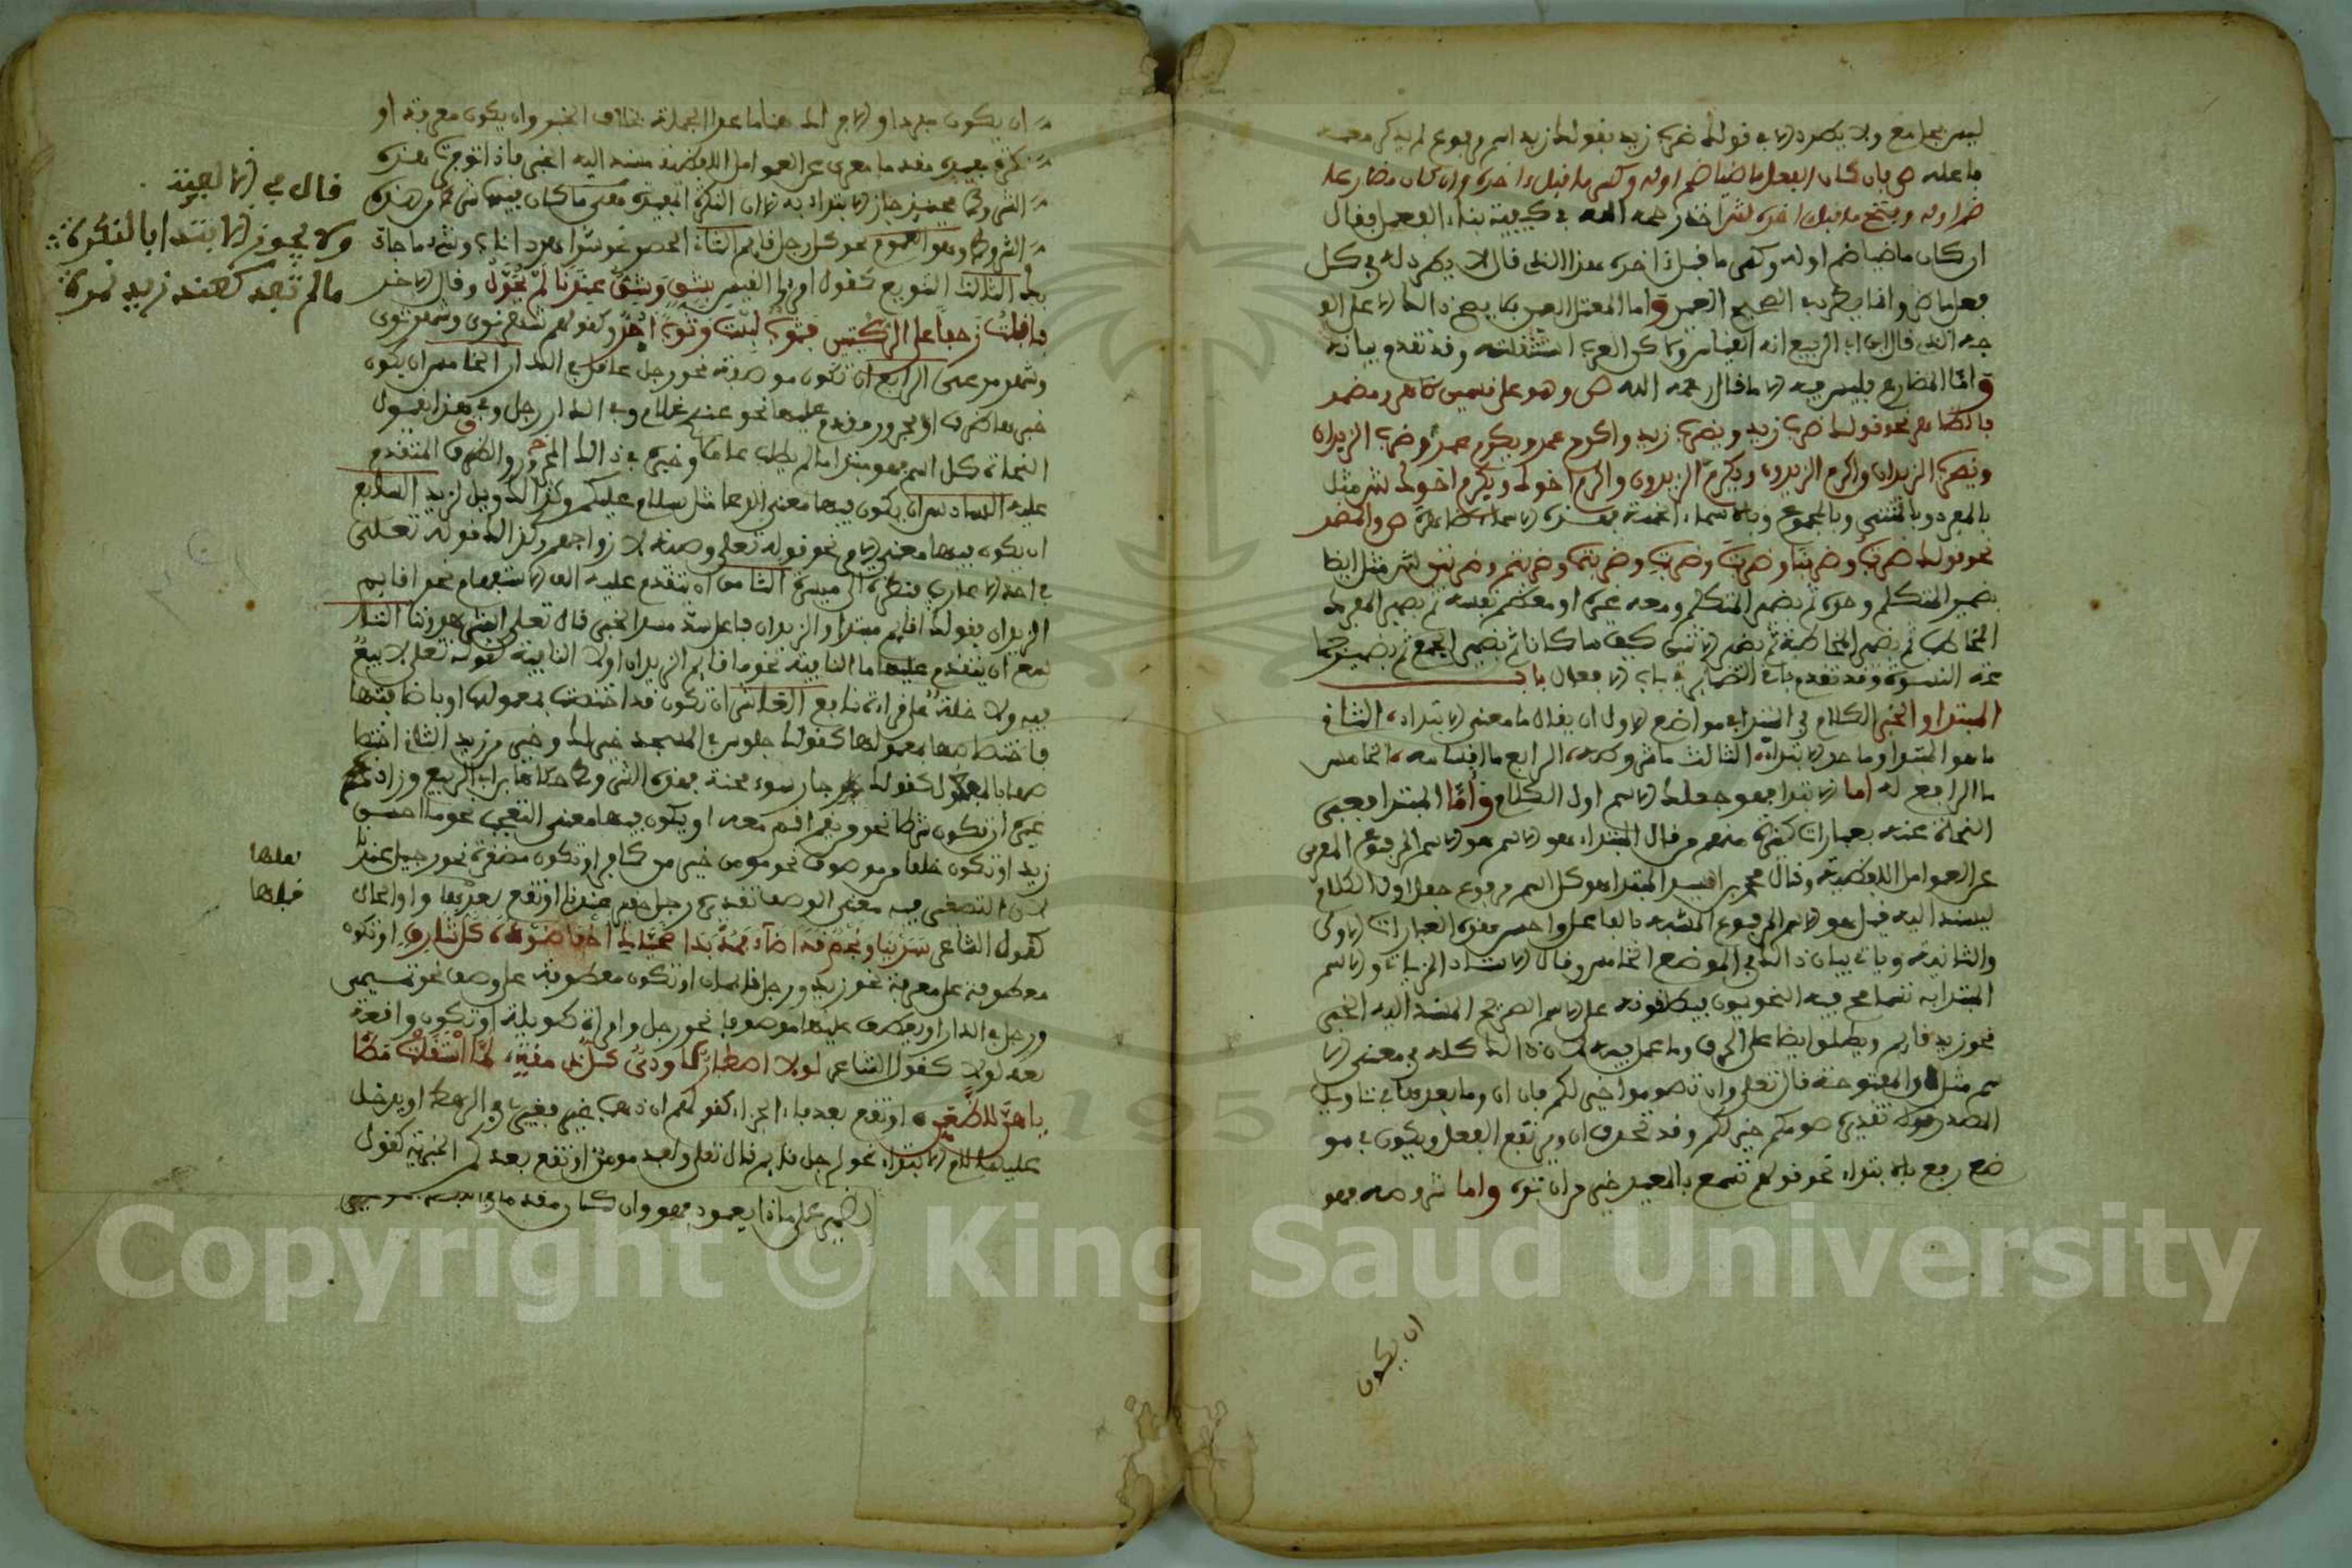 ليس بجامع ولا يطرد الا في قولك ضرب زيد بقولك زيد اسم مرفوع لم يذكر معه
فاعله ص فان كان الفعل ماضيا ضم اوله وكسر ما قبل ءاخره وان كان مضارعا
ضم اوله وفتح ما قبل اخره ش اخذ رحمه الله في كيفية بناء الفعل فقال
ان كان ماضيا ضم اوله وكسر ما قبل اخره هذا الذي قال لا يطرد له في كل
فعل ماض وانما يطرد في الصحيح العين واما المعتل العين فلا يصح ذلك الا على الو
جه الذي قال ابن ابي الربيع انه القياس ولاكن العرب استثقلته وقد تقدم بيانه
واما المضارع فليس فيه الا ما قال رحمه الله ص وهو على قسمين ظاهر ومضمر
فالظاهر نحو قولك ضرب زيد ويضرب زيد واكرم عمرو ويكرم عمرو وضرب الزيدان
ويضرب الزيدان واكرم الزيدون ويكرم الزيدون واكرم اخوك ويكرم اخوك ش مثل
بالمفرد وبالمثنى وبالمجموع وبالاسماء الخمسة فهذه الاسماء ظاهرة ص والمضمر
نحو قولك ضربت وضربنا وضربت وضربت وضربتما وضربتم وضربتن ش مثل ايضا
بضمير المتكلم وحده ثم بضمير المتكلم ومعه غيره او معظم نفسه ثم بضمير المفرد
المخاطب ثم بضمير المخاطبة ثم بضمير الاثنين كيف ما كانا ثم بضمير الجمع ثم بضمير جما
عة النسوة وقد تقدم باقي الضماير في باب الافعال باب
المبتدا والخبر الكلام في المبتدا في مواضع الاول ان يقال ما معنى الابتداء، الثاني
ما هو المبتدا وما حد الابتداء، الثالث ما شروطه، الرابع ما اقسامه، الخامس
ما الرافع له اما الابتدا فهو جعلك الاسم اول الكلام واما المبتدا فعبر
النحاة عنه بعبارات كثيرة منهم من قال المبتداء هو الاسم هو الاسم المرفوع المعرى
عن العوامل اللفظية وقال المبتدا هو كل اسم مرفوع جعل اول الكلام
ليسند اليه قيل هو الاسم المرفوع المشبه بالفاعل واحسن هذه العبارات الاولى
والثانية وياتي بيان ذلك في الموضع الخامس وقال الاستاد الزيات والاسم
المبتدا به تسامح فيه النحويون فيطلقونه على الاسم الصريح المسند اليه الخبر
نحو زيد قايم ويطلق ايضا على الحرف وما عمل فيه لان ذالك كله في معنى الا
سم مثل ان المفتوحة قال تعلى وان تصوموا خير لكم فان ان وما بعدها في تاويل
المصدر تقديره صومكم خير لكم وقد تحذف ان ويرتفع الفعل ويكون في مو
ضع رفع بالابتداء نحو قولهم تسمع بالمعيدي خير من ان تراه واما شروطه فهو
ان يكون
ان يكون مفردا والامر الد هنا ما عدا الجملة بخلاف الخبر وان يكون معرفة او
نكرة مفيدة مقدما معرى عن العوامل اللفظية مسند اليه الخبر فاذا توفرت هذه
الشروط حينئذ جاز الابتداء به الا ان النكرة المفيدة معنى ما كان فيها شرط من هذه
الشروط وهو العموم نحو كل رجل قايم الثاني الحصر نحو شر اهر ذا ناب وشيء ما جاء
بك الثالث التنويع كقول امرئ القيس بشق وشق عندنا لم يحول وقال الاخر
فاقبلت زحفا على الركبتين فثوب لبست وثوب اجر وكقولهم شهر ثرى وشهر ترى
وشهر مرعى الرابع ان تكون موصوفة نحو رجل عاقل في الدار الخامس ان يكون
خبرها ظرف او مجرور مقدم عليها نحو عندي غلام وفي الدار رجل وفي هذا يقول
النحاة كل اسم فهو مبتدا ما لم يطلبه عامل وخبره في ذالك المجرور والظرف المتقدم
عليه السادس ان يكون فيها معنى الدعا مثل سلام عليكم وكذالك ويل لزيد السابع
ان يكون فيها معنى الامر نحو قوله تعلى وصية لازواجهم وكذالك قوله تعلى
في احد الاعاريب فنظرة الى ميسرة الثامن ان يتقدم عليه الف الاستفهام نحو اقايم
الزيدان فقولك اقايم مبتدا والزيدان فاعل سد مسد الخبر قال تعلى
سع ان يتقدم عليها ما النافية نحو ما قايم الزيدان او لا النافية كقوله تعلى لا بيع
فيه ولا خلة على قراءة نافع العاشر ان تكون قد اختصت بمعمولها او باضافتها
فاختصاصها بمعمولها كقولك جلوس في المسجد خير لك وخير من زيد الثاني اختصا
كقولك جار سوء محنة فهذه الشروط حكاها ابن ابي الربيع وزاد
غيره ان تكون شرطا نحو من يقم اقم معه او يكون فيها معنى التعجب نحو ما احسن
زيد او تكون خلفا من موصوف نحو مومن خير من كافر او تكون مصغرة نحو رجيل عندنا
لان التصغير فيه معنى الوصف تقديره رجل حقير عندنا او تقع بعد واو الحال
كقول الشاعر سرينا ونجم قد اضاء فمذ بدا محياك اخفا ضوءه كل شارق او تكون
معطوفة على معرفة نحو زيد ورجل قايمان او تكون معطوفة على وصف نحو تميمي
ورجل في الدار او يعطف عليها موصوف نحو رجل وامراة طويلة او تكون واقعة
بعد لولا كقول الشاعر لولا اصطبار لاودى كل ذي مقة، لما استقلت مطا
ياهن للظعن، او تقع بعد فاء الجزاء كقولهم ان ذهب عير فعير في الرهط او يدخل
عليها لام الابتداء نحو لرجل قايم قال تعلى ولعبد مومن او تقع بعد كم الخبرية كقول
قال في الالفية
ولا يجوز الابتدا بالنكرة
ما لم تفد كعند زيد نمرة
بعلها
قبلها
1957
Copyright © King Saud University